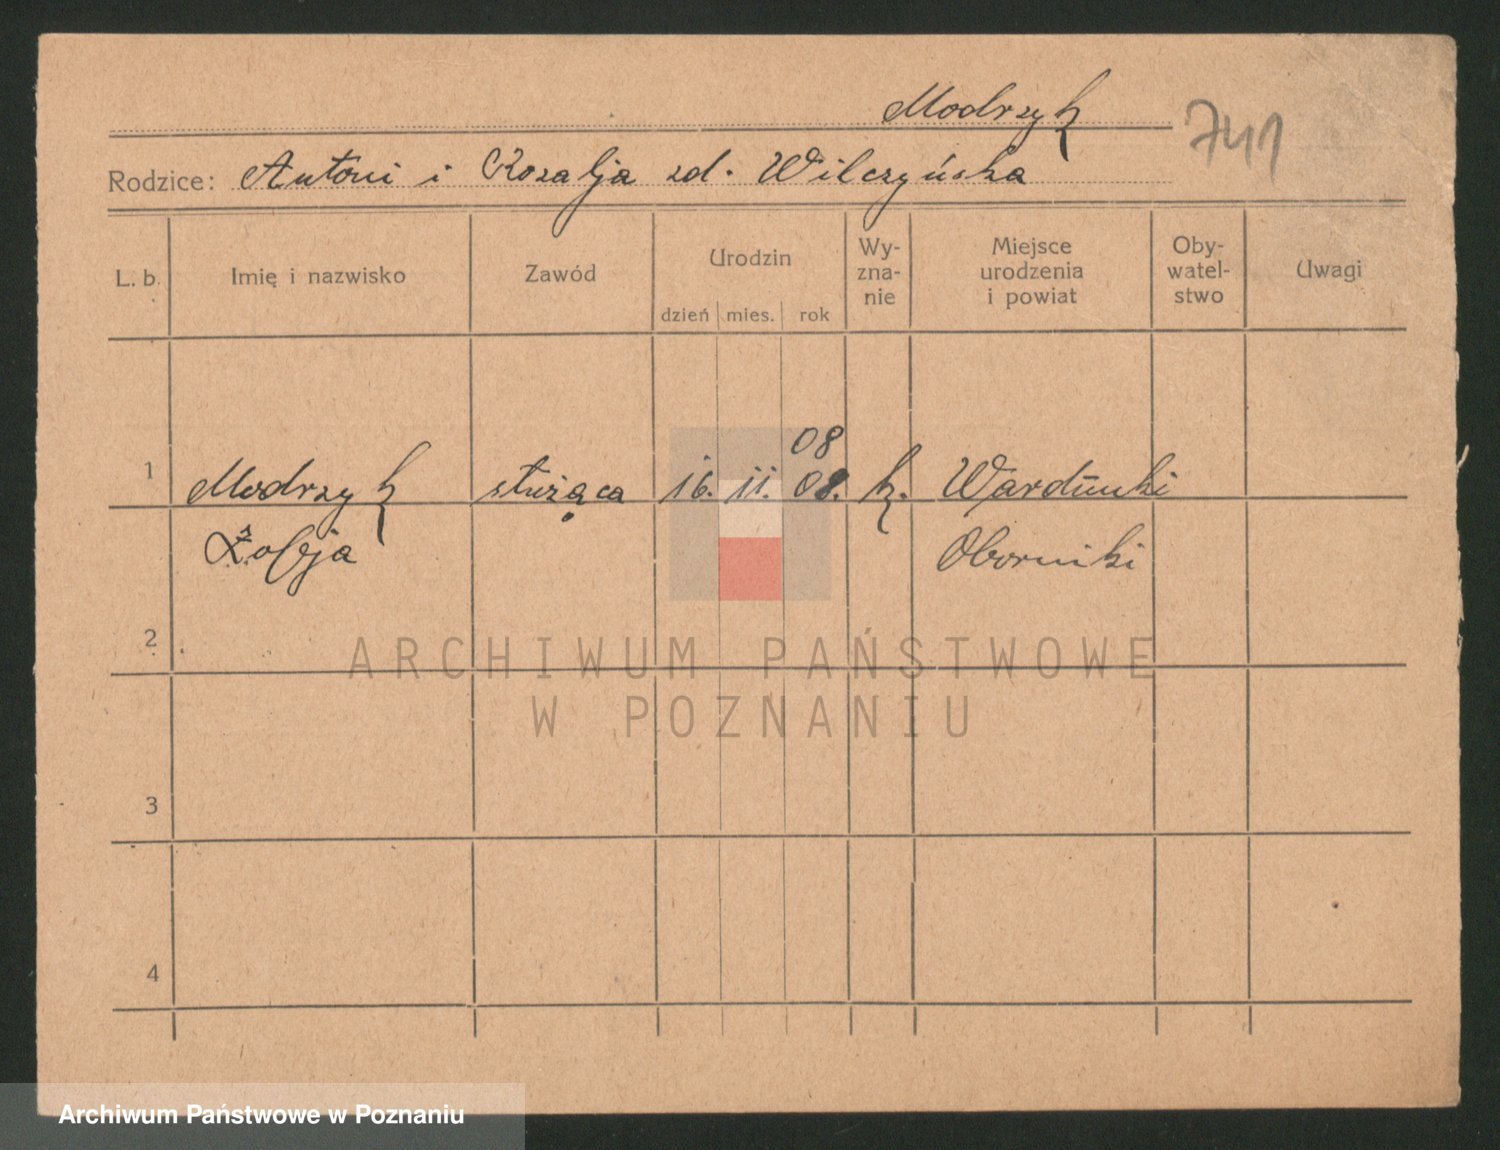 Modrzyk
741
Rodzice: Antoni i Rozalja zd. Wilczyńska
L. b. Imię i nazwisko Zawód Urodzin dzień mies. rok Wy-zna-nie Miejsce urodzenia i powiat Oby-watel-stwo Uwagi
08
1 Modrzyk służąca 16. 11. 08. k. Wardunki
Zofja Oborniki
2
ARCHIWUM PAŃSTWOWE
W POZNANIU
3
4
Archiwum Państwowe w Poznaniu